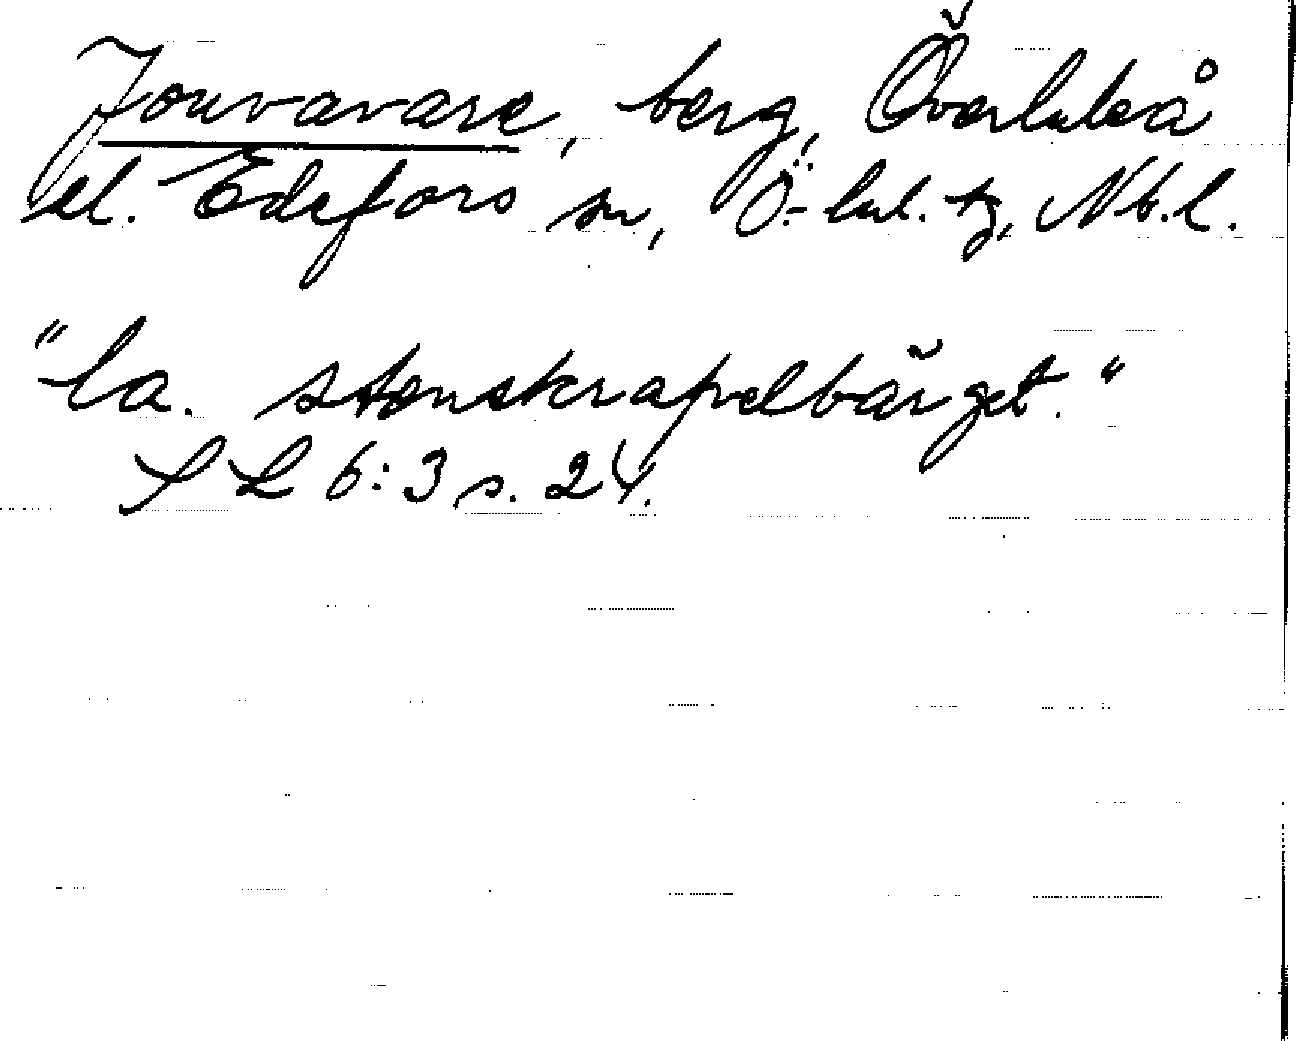 Jouvavare, berg, Överluleå
el. Edefors sn, Ö. lul. tg, Nb.l.
"la. stenskrapelbärget."
SL 6:3 s. 24.